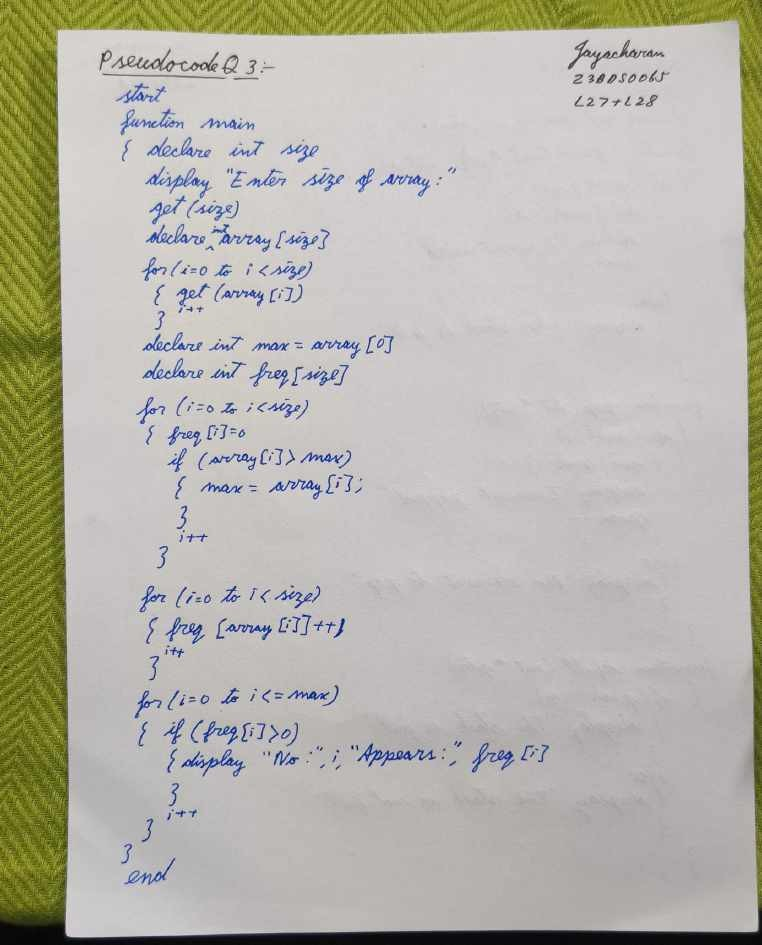 Pseudocode Q 3:-
Jayacharan
23BDS0065
L27+L28
start
function main
{ declare int size
display "Enter size of array:"
get (size)
declare int array [size]
for (i=0 to i < size)
{ get (array [i])
i++
}
declare int max = array [0]
declare int freq [size]
for (i=0 to i<size)
{ freq [i]=0
if (array[i]> max)
{ max = array [i];
}
i++
}
for (i=0 to i< size)
{ freq [array [i]]++}
i++
}
for (i=0 to i<= max)
{ if (freq[i]>0)
{ display "No:", i, "Appears:", freq [i]
}
i++
}
}
end